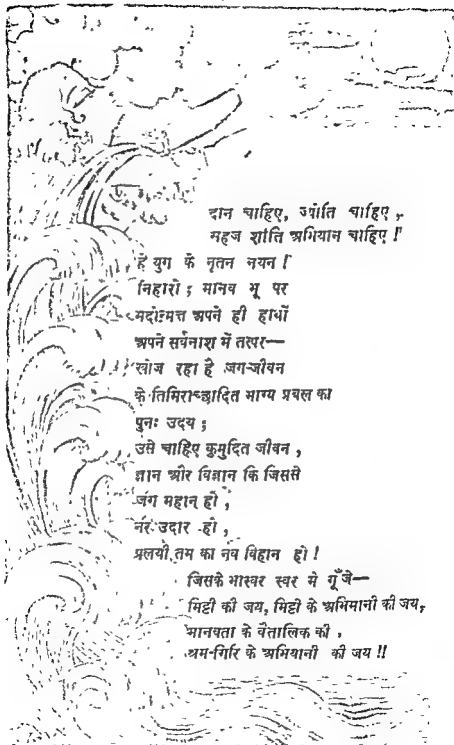 दान चाहिए, ज्योति चाहिए,
महज शांति अभियान चाहिए !
हे युग के नूतन नयन !
निहारो ; मानव भू पर
मदोन्मत्त अपने ही हाथों
अपने सर्वनाश में तत्पर—
खोज रहा है जग-जीवन
के तिमिराच्छादित भाग्य प्रबल का
पुनः उदय ;
उसे चाहिए कुमुदित जीवन ,
ज्ञान और विज्ञान कि जिससे
जग महान हो ,
नर उदार हो ,
प्रलयी तम का नव विहान हो !
जिसके भास्वर स्वर मे गूँजे—
मिट्टी की जय, मिट्टी के अभिमानी की जय,
मानवता के वैतालिक की ,
श्रम-गिरि के अभियानी की जय !!